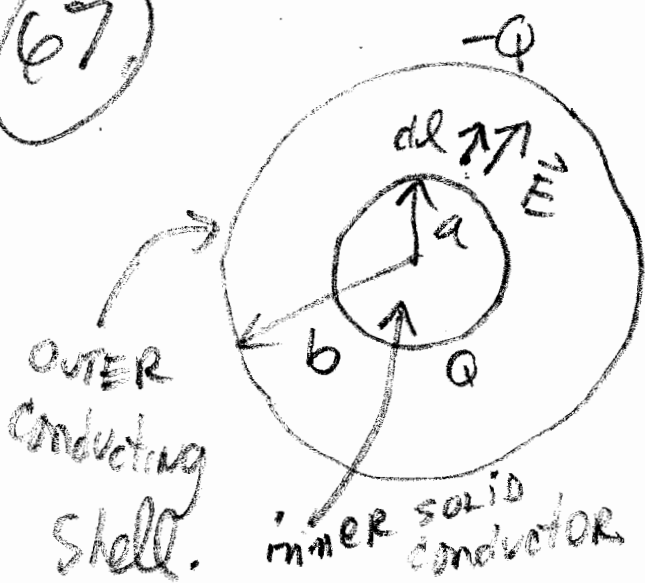 67
-Q
dl
E
a
b
Q
OUTER
conducting
Shell.
inner SOLID
conductor